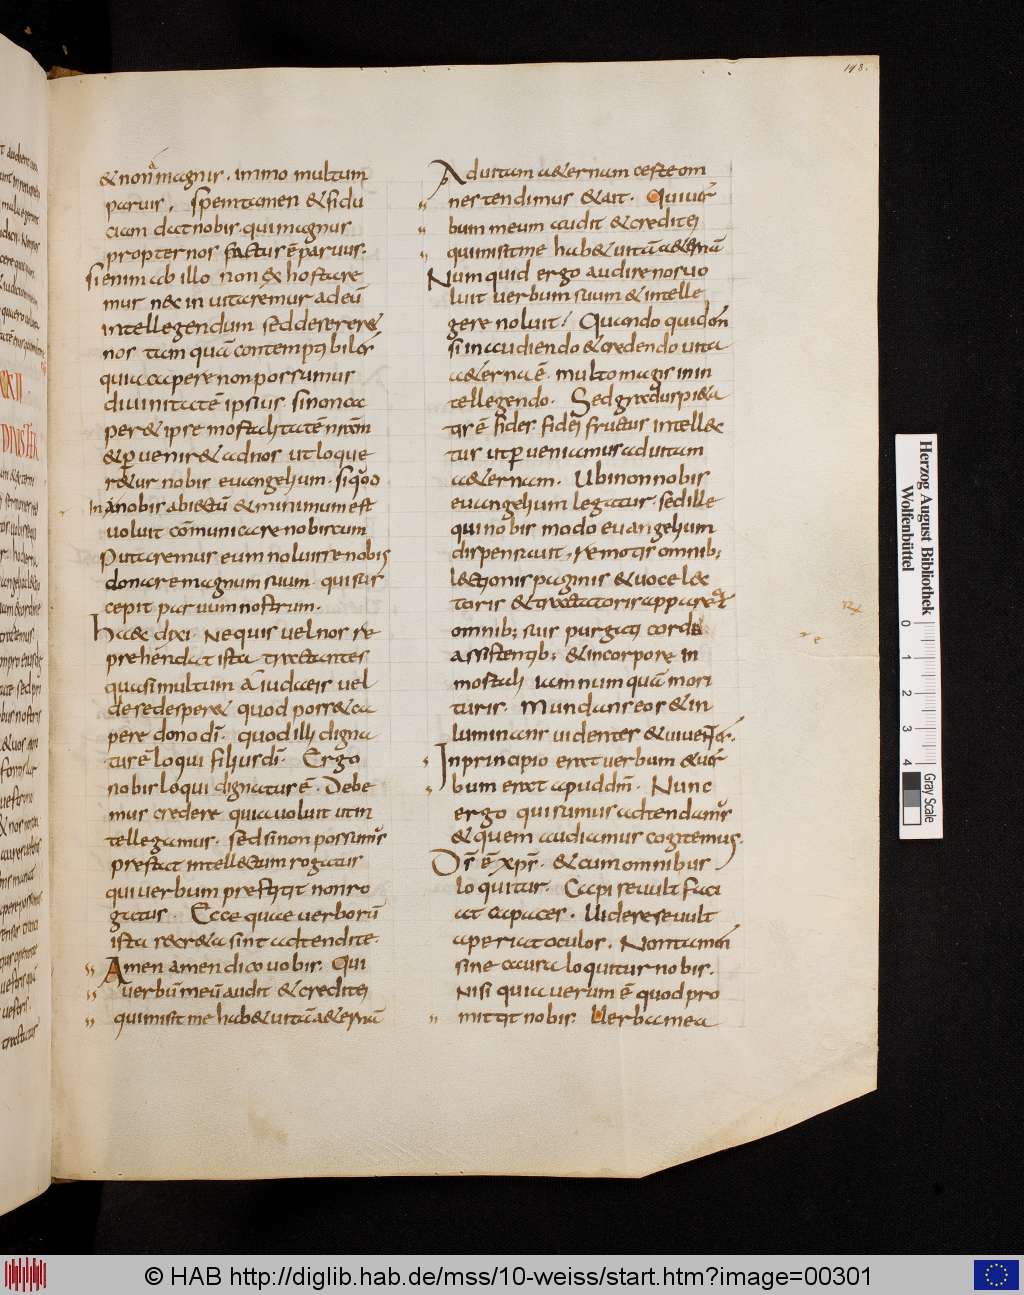 148.
& non magnis. immo multum
paruis, spem tamen & fidu
ciam dat nobis. qui magnus
propter nos factus ē paruus.
Si enim ab illo non ex hortare
mur nec in uitaremur ad eū
intellegendum sed desereret
nos tam quā contemptibiles
quia capere non possumus
diuinitatē ipsius, si non ca
per& ipse mortalitatē nram
& puenir& ad nos ut loque
r&ur nobis euangelium. si qđ
in nobis abiectū & minimum est
uoluit cōmunicare nobiscum
Putaremus eum noluisse nobis
donare magnum suum. qui sus
cepit paruum nostrum.
haec dixi. Ne quis uel nos re
prehendat ista tractantes
quasi multum audaces uel
de se desper& quod poss& ca
pere dono dī. quod illi digna
tur ē loqui filius dī. Ergo
nobis loqui dignatus ē. Debe
mus credere quia uoluit ut in
tellegamus. sed si non possumus
prestat intellectum rogatus
qui uerbum prestitit non ro
gatus. Ecce quae uerborū
ista secreta sint adtendite.
Amen amen dico uobis. Qui
uerbū meū audit & credit ei
qui misit me hab& uitā aeternā
Ad uitam aeternam certe om
nes tendimus & ait. Qui uer
bum meum audit & credit ei
qui misit me hab& uitā aeternā
Num quid ergo audire nos uo
luit uerbum suum & intelle
gere noluit? Quando quidem
si in audiendo & credendo uita
aeterna ē. multo magis in in
tellegendo. Sed gradus pieta
tis ē fides. fidei fructus intellec
tus ut pueniamus ad uitam
aeternam. Ubi non nobis
euangelium legatur. sed ille
qui nobis modo euangelium
dispensauit, remotis omnib;
lectionis paginis & uoce lec
toris & tractatoris appareat
omnib; suis purgato corde
assistentib; & in corpore in
mortali iam num quā mori
turis. Mundans eos & in
luminans uidentes & uiuentes.
In principio erat uerbum & uer
bum erat apud dm̄. Nunc
ergo qui sumus adtendamus
& quem audiamus cogitemus.
Ds̄ ē xps̄. & cum omnibus
loquitur. Capi se uult faci
at capaces. Uidere se uult
aperiat oculos. Non tamen
sine causa loquitur nobis.
Nisi quia uerum ē quod pro
mittit nobis. Uerba mea
Herzog August Bibliothek
Wolfenbüttel
0 1 2 3 4
Gray Scale
© HAB http://diglib.hab.de/mss/10-weiss/start.htm?image=00301